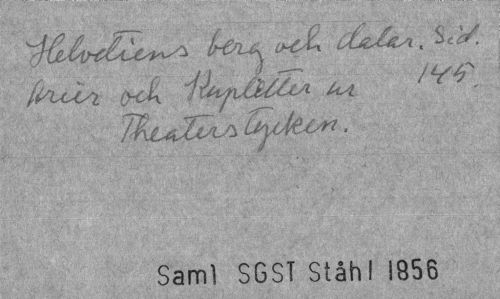 Helvetiens berg och dalar. Sid.
Arier och Kupletter ur 145.
Theaterstycken.
Saml SGST Ståhl 1856